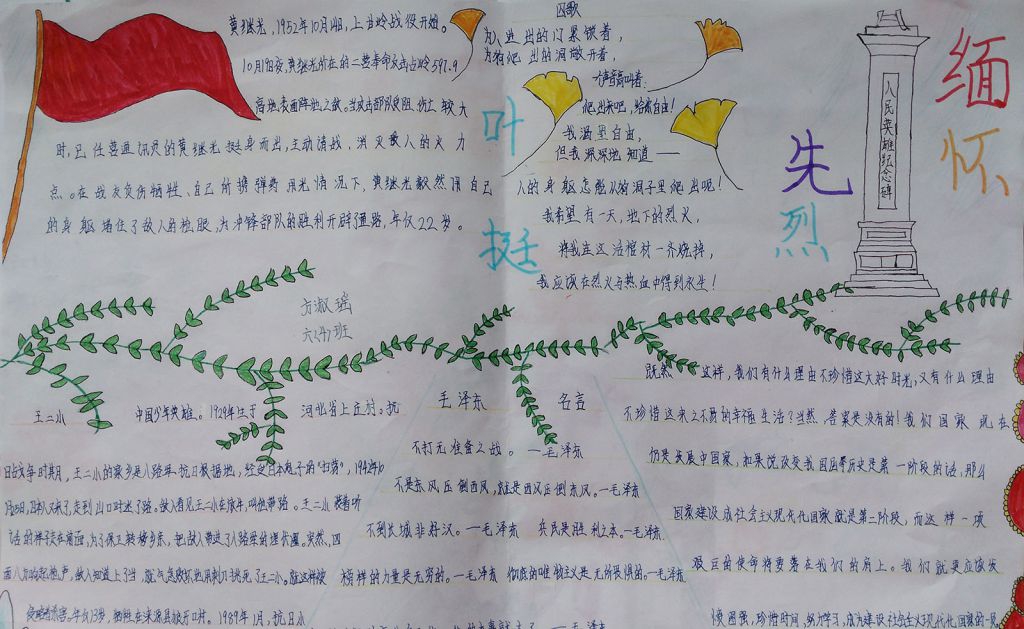 黄继光，1952年10月14日，上甘岭战役开始。
10月19日夜，黄继光所在的二营奉命反击占岭597.9
高地表面阵地之敌。当反击部队受阻、伤亡较大
时，已任营通讯员的黄继光挺身而出，主动请战，消灭敌人的火力
点。在战友负伤牺牲、自己所携弹药用光情况下，黄继光毅然用自己
的身躯堵住了敌人的枪眼，为冲锋部队的胜利开辟通路，年仅22岁。
叶
挺
囚歌
为人进出的门紧锁着，
为狗爬出的洞敞开着，
一个声音高叫着：
爬出来吧，给你自由！
我渴望自由，
但我深深地知道——
人的身躯怎能从狗洞子里爬出呢！
我希望有一天，地下的烈火，
将我连这活棺材一齐烧掉，
我应该在烈火与热血中得到永生！
缅
怀
先
烈
人民英雄纪念碑
方淑瑶
六(4)班
王二小 中国少年英雄。1929年生于 河北省上庄村。抗
日战争时期，王二小的家乡是八路军抗日根据地，经受日本鬼子的"扫荡"，1942年10
月25日，日本人又来了，走到山口时迷了路。敌人看见王二小在放牛，叫他带路。王二小装着听
话的样子走在前面，为了保卫转移乡亲，把敌人带进了八路军的埋伏圈。突然，四
面八方响起枪声，敌人知道上了当，就气急败坏地用刺刀挑死了王二小。就这样被
年仅13岁，牺牲在涞源县狼牙口村。1989年1月，抗日小
毛泽东 名言
不打无准备之战。—毛泽东
不是东风压倒西风，就是西风压倒东风。—毛泽东
不到长城非好汉。—毛泽东 兵民是胜利之本。—毛泽东
榜样的力量是无穷的。—毛泽东 彻底的唯物主义是无所畏惧的。—毛泽东
—毛泽东
既然 这样，我们有什么理由不珍惜这大好时光，又有什么理由
不珍惜这来之不易的幸福生活？当然，答案是没有的！我们国家现在
仍是发展中国家，如果说改变我国 历史是第一阶段的话，那么
国家建设成社会主义现代化国家就是第二阶段，而这样一项
艰巨的使命将要落在我们的肩上。我们就更应该发
愤图强，珍惜时间，努力学习，成为建设社会主义现代化国家的一员